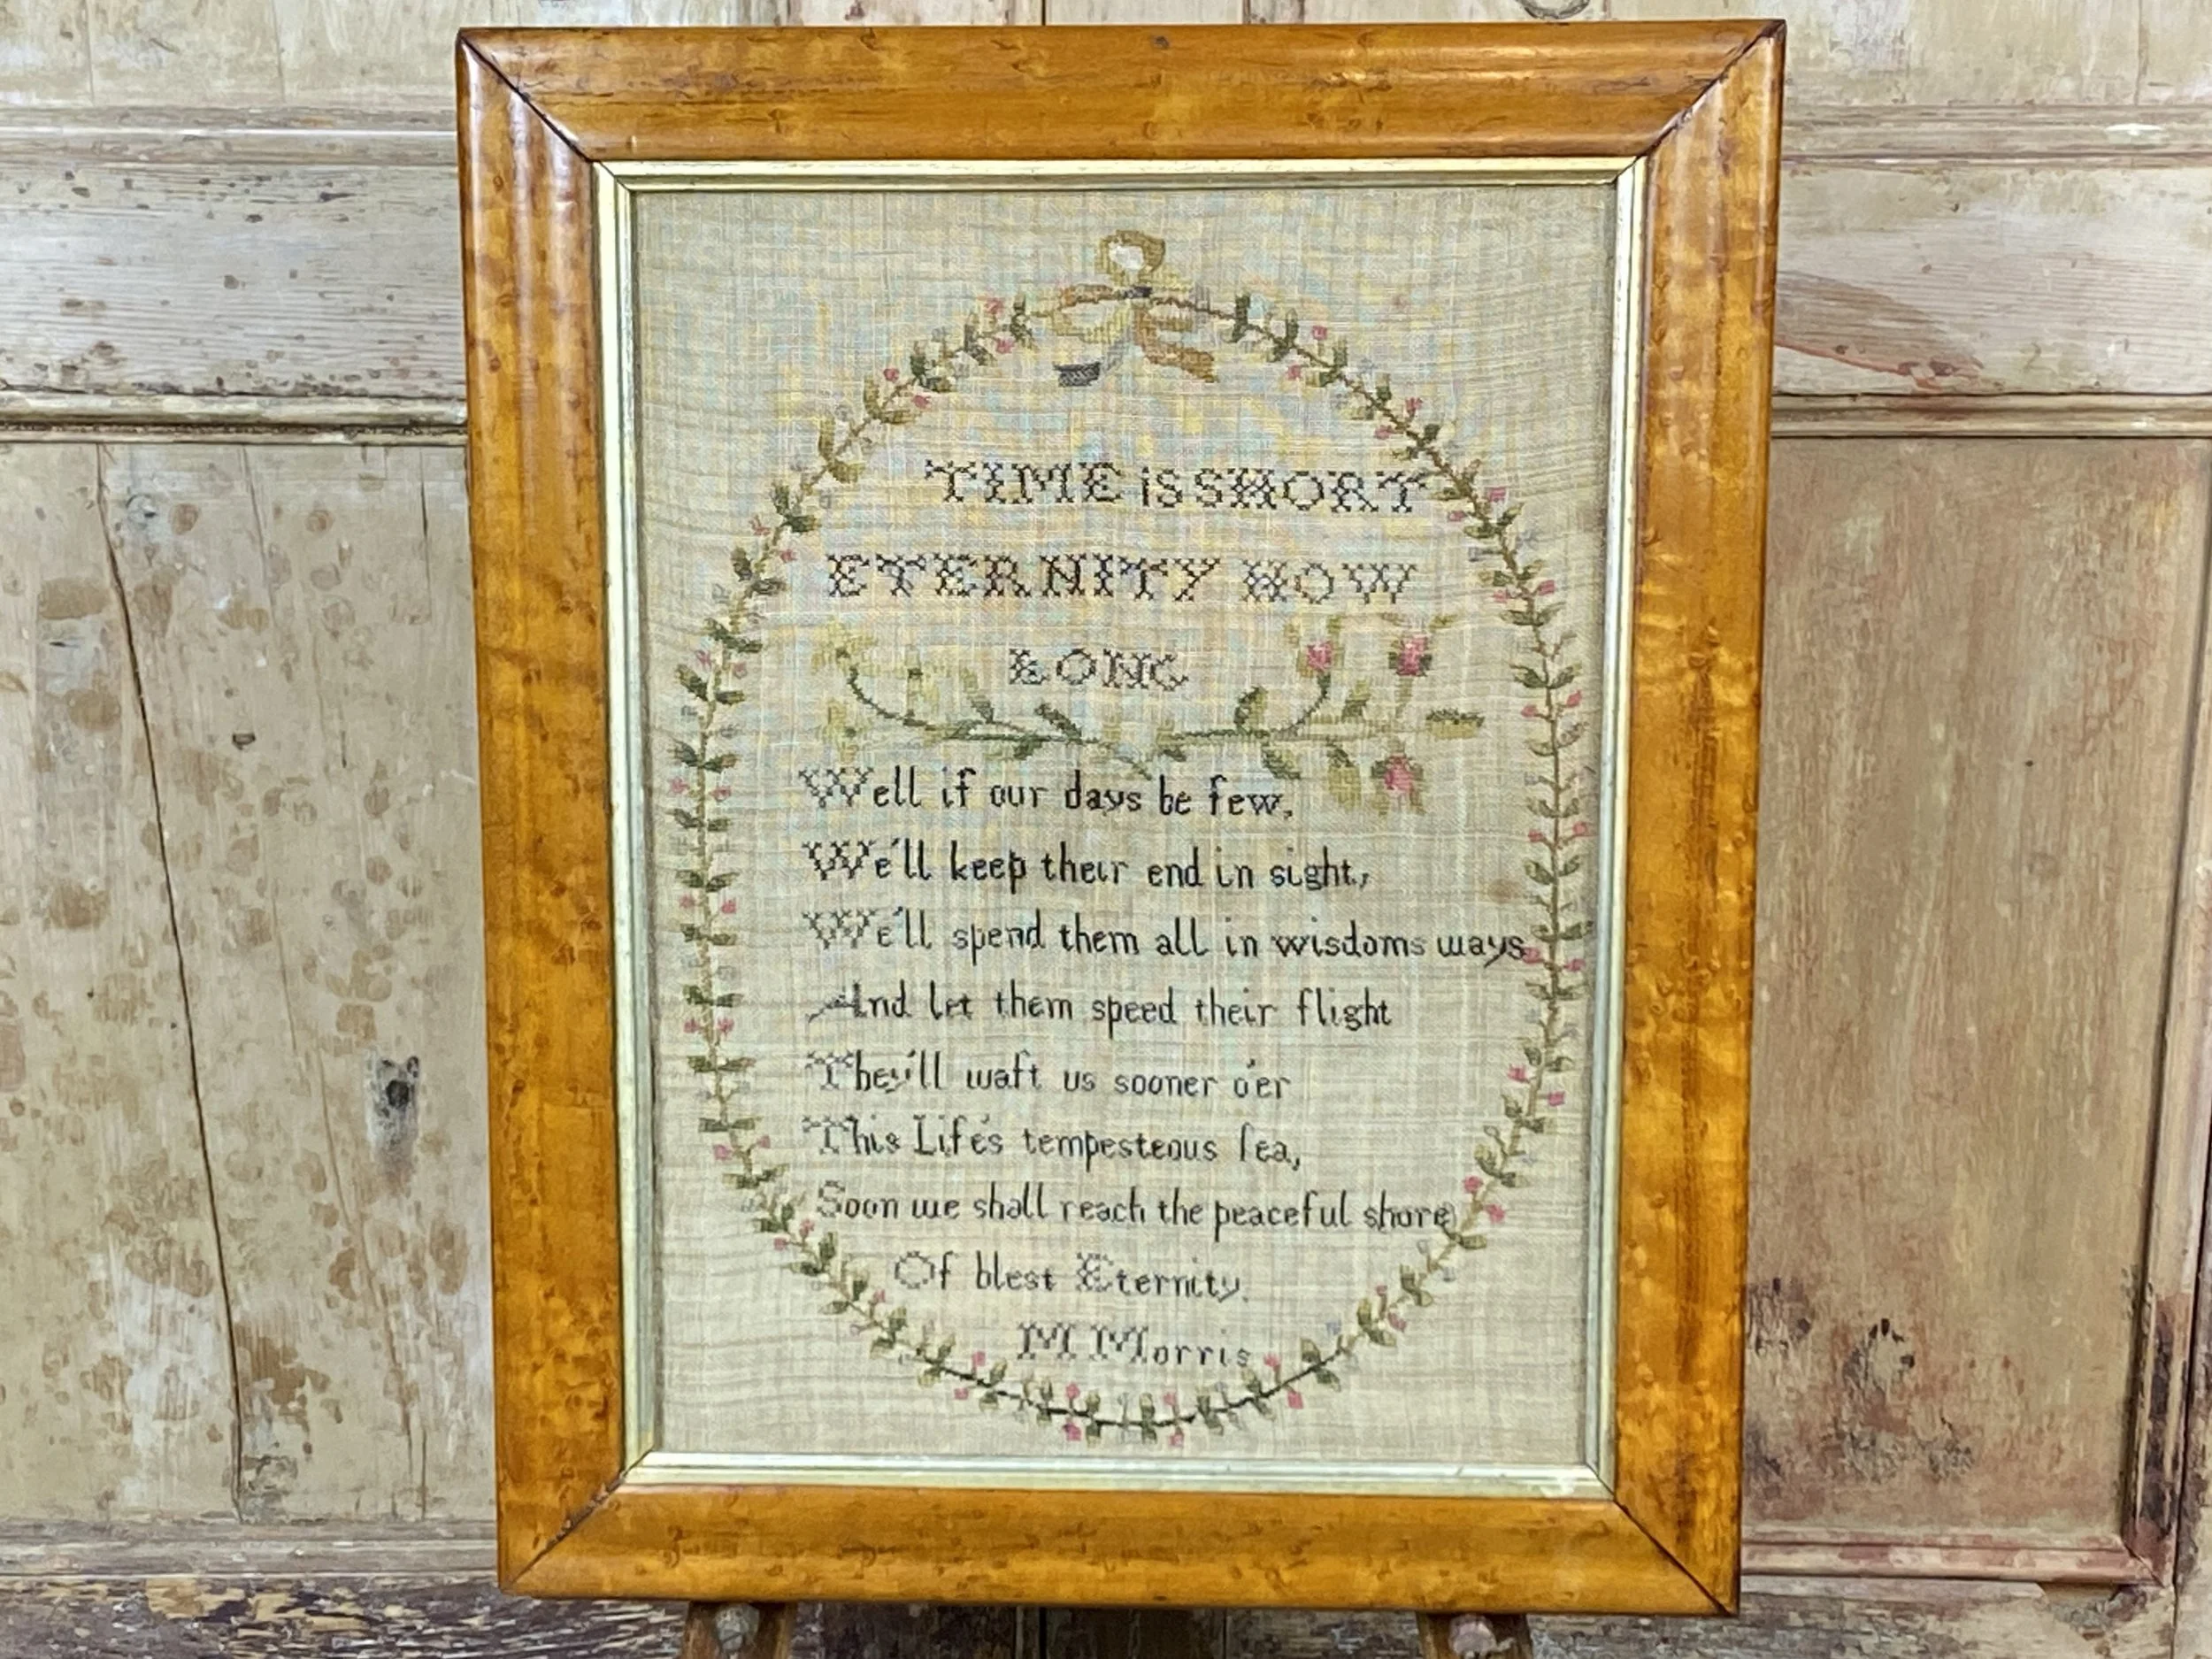 TIME is SHORT
ETERNITY HOW
LONG
Well if our days be few,
We'll keep their end in sight,
We'll spend them all in wisdoms ways
And let them speed their flight
They'll waft us sooner o'er
This Life's tempesteous ſea,
Soon we shall reach the peaceful shore
Of blest Eternity.
M Morris